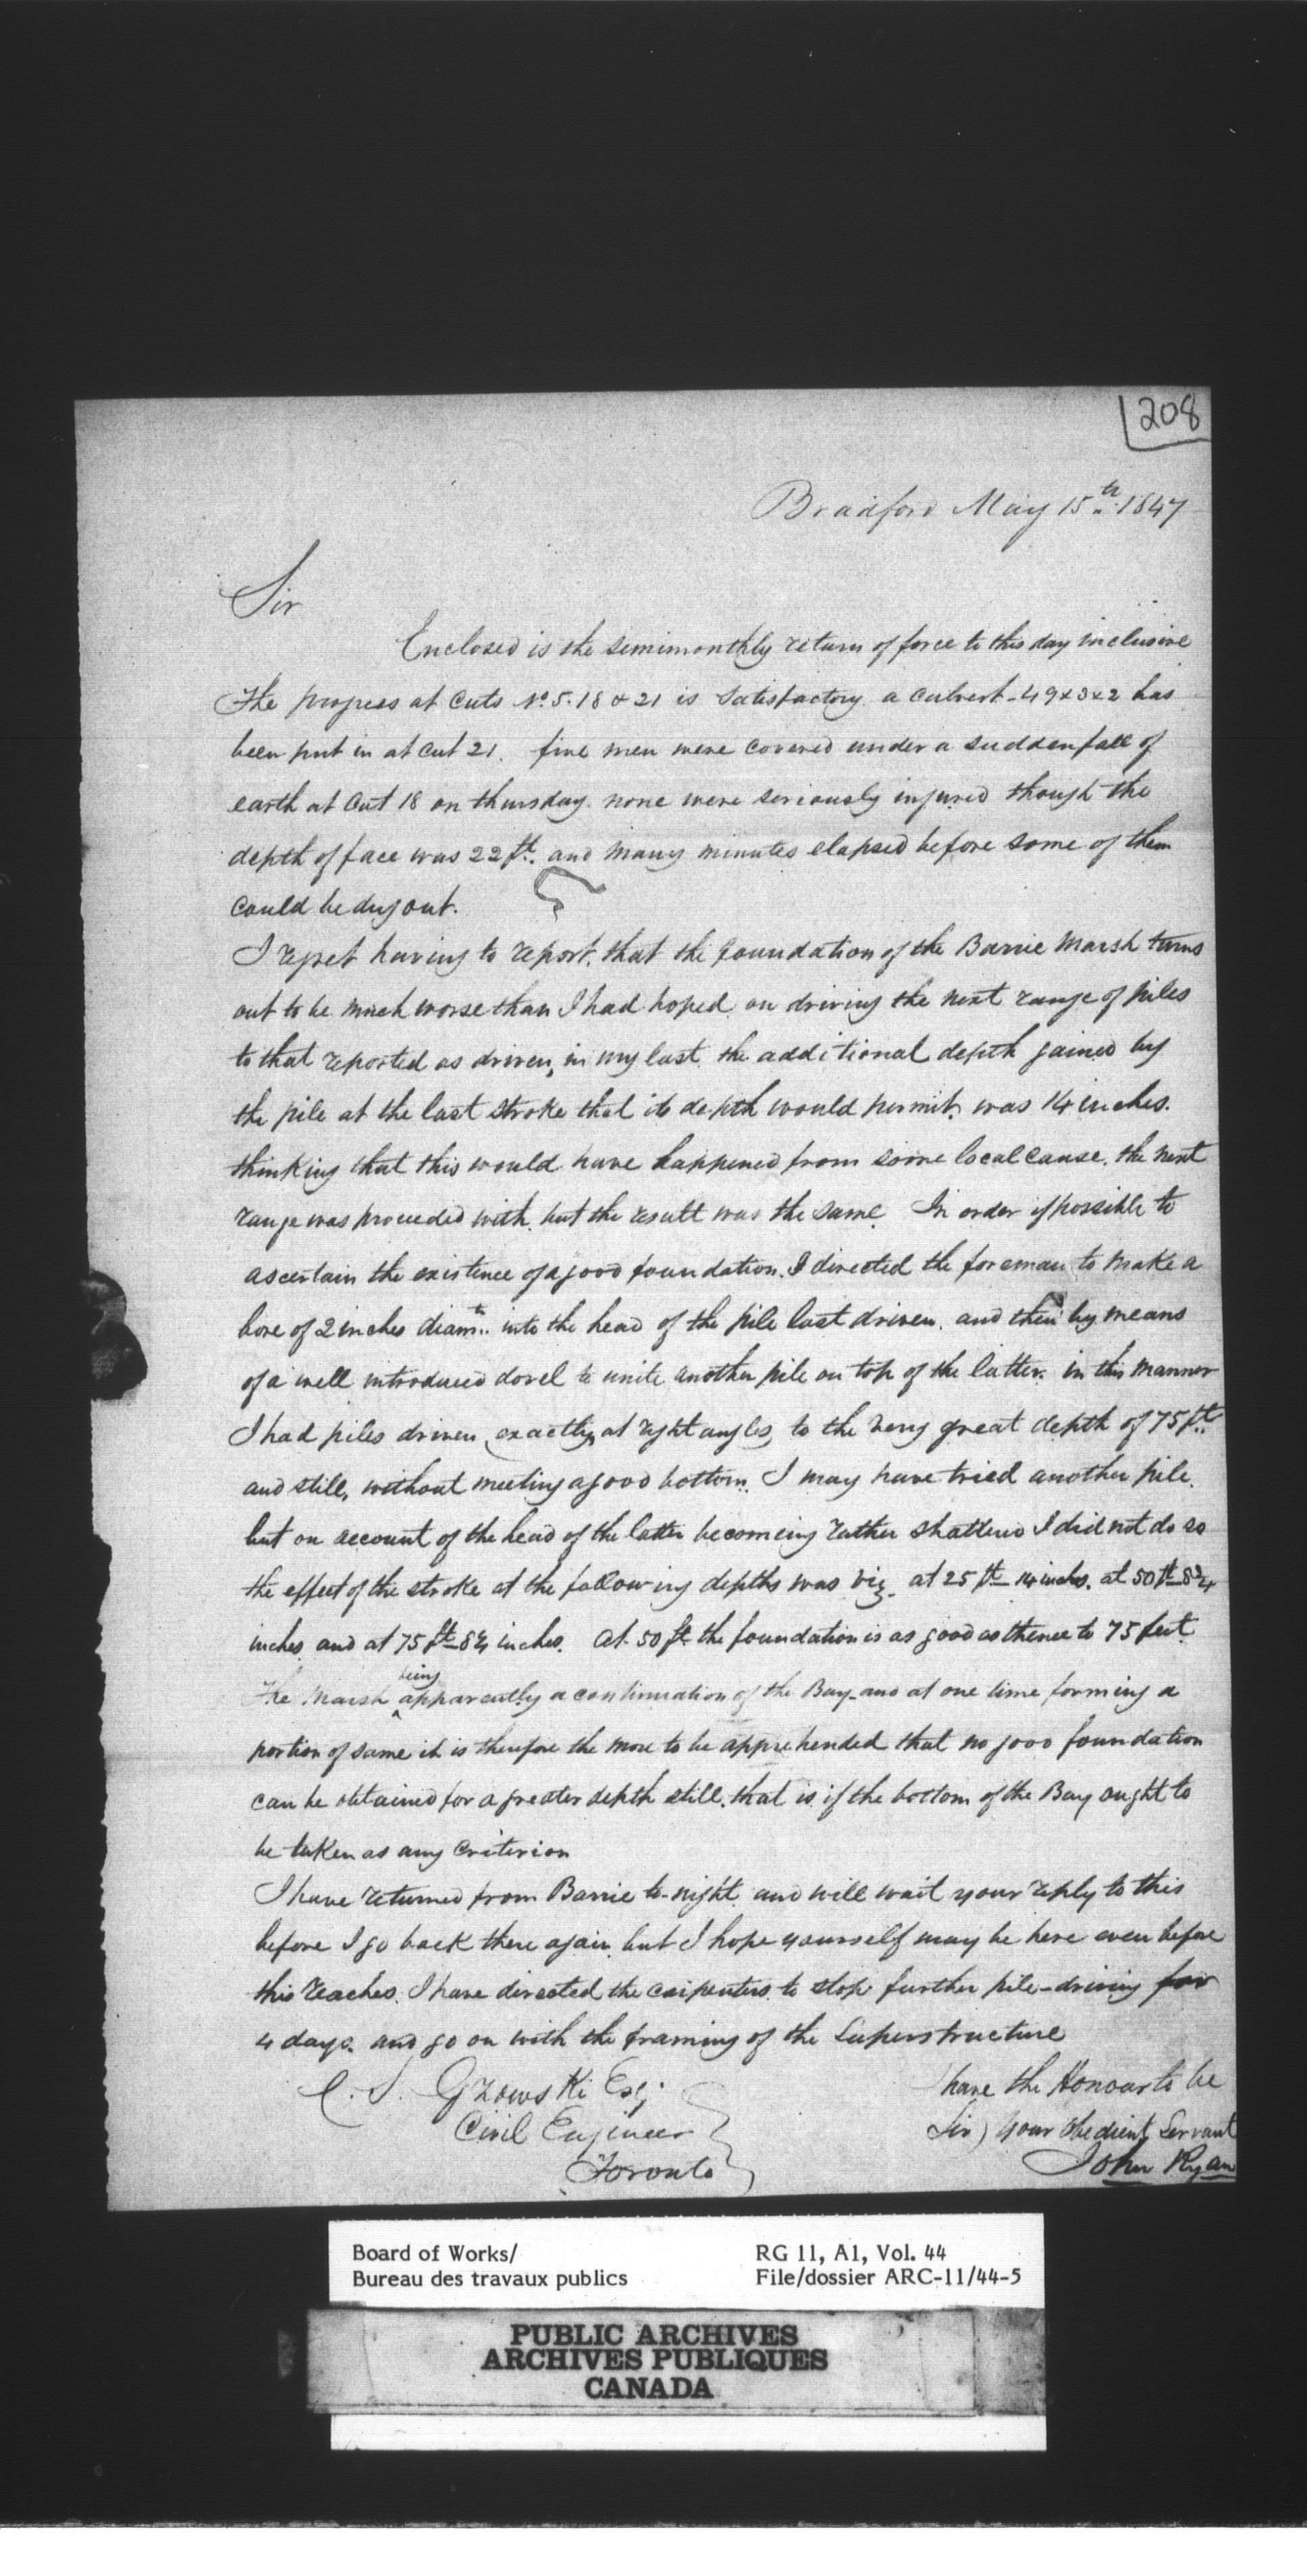 208
Bradford May 15th 1847
Sir
Enclosed is the semimonthly return of force to this day inclusive
The progress at Cuts No. 5. 18 & 21 is satisfactory a culvert - 49x3x2 has
been put in at cut 21. five men were covered under a sudden fall of
earth at Cut 18 on thursday. none were seriously injured though the
depth of face was 22 ft. and many minutes elapsed before some of them
could be dug out.
I regret having to report, that the foundation of the Barrie Marsh turns
out to be much worse than I had hoped. on driving the next range of piles
to that reported as driven, in my last the additional depth gained by
the pile at the last stroke that its depth would permit, was 14 inches.
thinking that this would have happened from some local cause, the next
range was proceeded with, but the result was the same. In order if possible to
ascertain the existence of a good foundation. I directed the foreman to make a
bore of 2 inches diamtr. into the head of the pile last driven, and then by means
of a well introduced dovel to unite another pile on top of the latter. in this manner
I had piles driven, exactly at right angles, to the very great depth of 75 ft.
and still, without meeting a good bottom. I may have tried another pile.
but on account of the head of the latter becoming rather shattered I did not do so
the effect of the stroke at the following depths was viz. at 25 ft - 14 inches. at 50 ft - 8¾
inches and at 75 ft - 8¾ inches. At 50 ft the foundation is as good as thence to 75 feet.
being
The Marsh apparently a continuation of the Bay - and at one time forming a
portion of same it is therefore the more to be apprehended that no good foundation
can be obtained for a greater depth still, that is if the bottom of the Bay ought to
be taken as any criterion
I have returned from Barrie to-night and will wait your reply to this
before I go back there again, but I hope yourself may be here even before
this reaches. I have directed the carpenters to stop further pile-driving for
4 days. and go on with the framing of the Superstructure
I have the Honour to be
Sir) your obedient Servant
John Ryan
C. S. Gzowski Esq
Civil Engineer
Toronto
Board of Works/
Bureau des travaux publics
RG 11, A1, Vol. 44
File/dossier ARC-11/44-5
PUBLIC ARCHIVES
ARCHIVES PUBLIQUES
CANADA